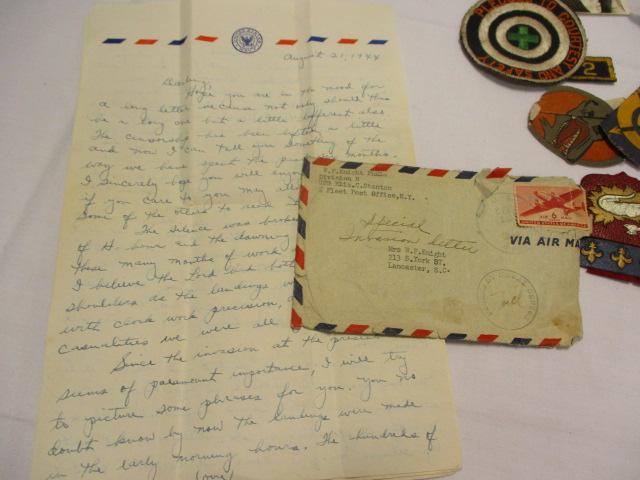 August 21, 1944
Darling,
Hope you are in the mood for
a long letter because not only should this
be a long one but a little different also
The censorship has been lifted a little
and now I can tell you something of the
way we have spent the months.
I sincerely hope you will enjoy
if you care to you may
some of the others to read
The silence was broken
of H-hour and the dawning
those many months of work
I believe the Lord was
shoulders as the landings
with clock work precision,
casualties we were all
Since the invasion at the present
seems of paramount importance, I will try
to picture some phrases for you. You no
doubt know by now the landings were made
in the early morning hours. The hundreds of
(over)
W.P.Knight
Division H
USS Eliz.C.Stanton
% Fleet Post Office, N.Y.
Special
Invasion letter
AIR 6 MAIL
UNITED STATES OF AMERICA
VIA AIR MA
Mrs W.P.Knight
213 S.York ST.
Lancaster, S.C.
PLEDGED TO COURTESY AND SAFETY
2